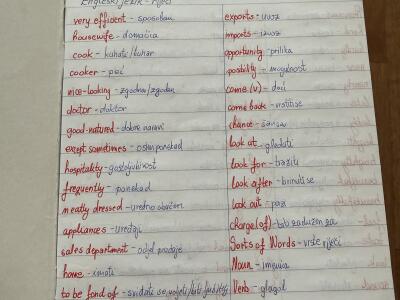 Engleski jezik - riječi
very efficent - sposoban
housewife - domaćica
cook - kuhati/kuhar
cooker - peć
nice-looking - zgodna/zgodan
doctor - doktor
good-natured - dobre naravi
exept sometimes - osim ponekad
hospitality - gostoljubivost
frequently - ponekad
neatly dressed - uredno obučen
appliances - uređaji
sales department - odjel prodaje
have - imati
to be fond of - sviđati se, voljeti/biti
exports - uvoz
imports - izvoz
opportunity - prilika
posibility - mogućnost
come (v) - doći
come back - vratiti se
chance - šansa
look at - gledati
look for - tražiti
look after - brinuti se
look out - pazi
charge (of) - biti zadužen za
Sorts of Words - vrste riječi
Noun - imenica
Verb - glagol